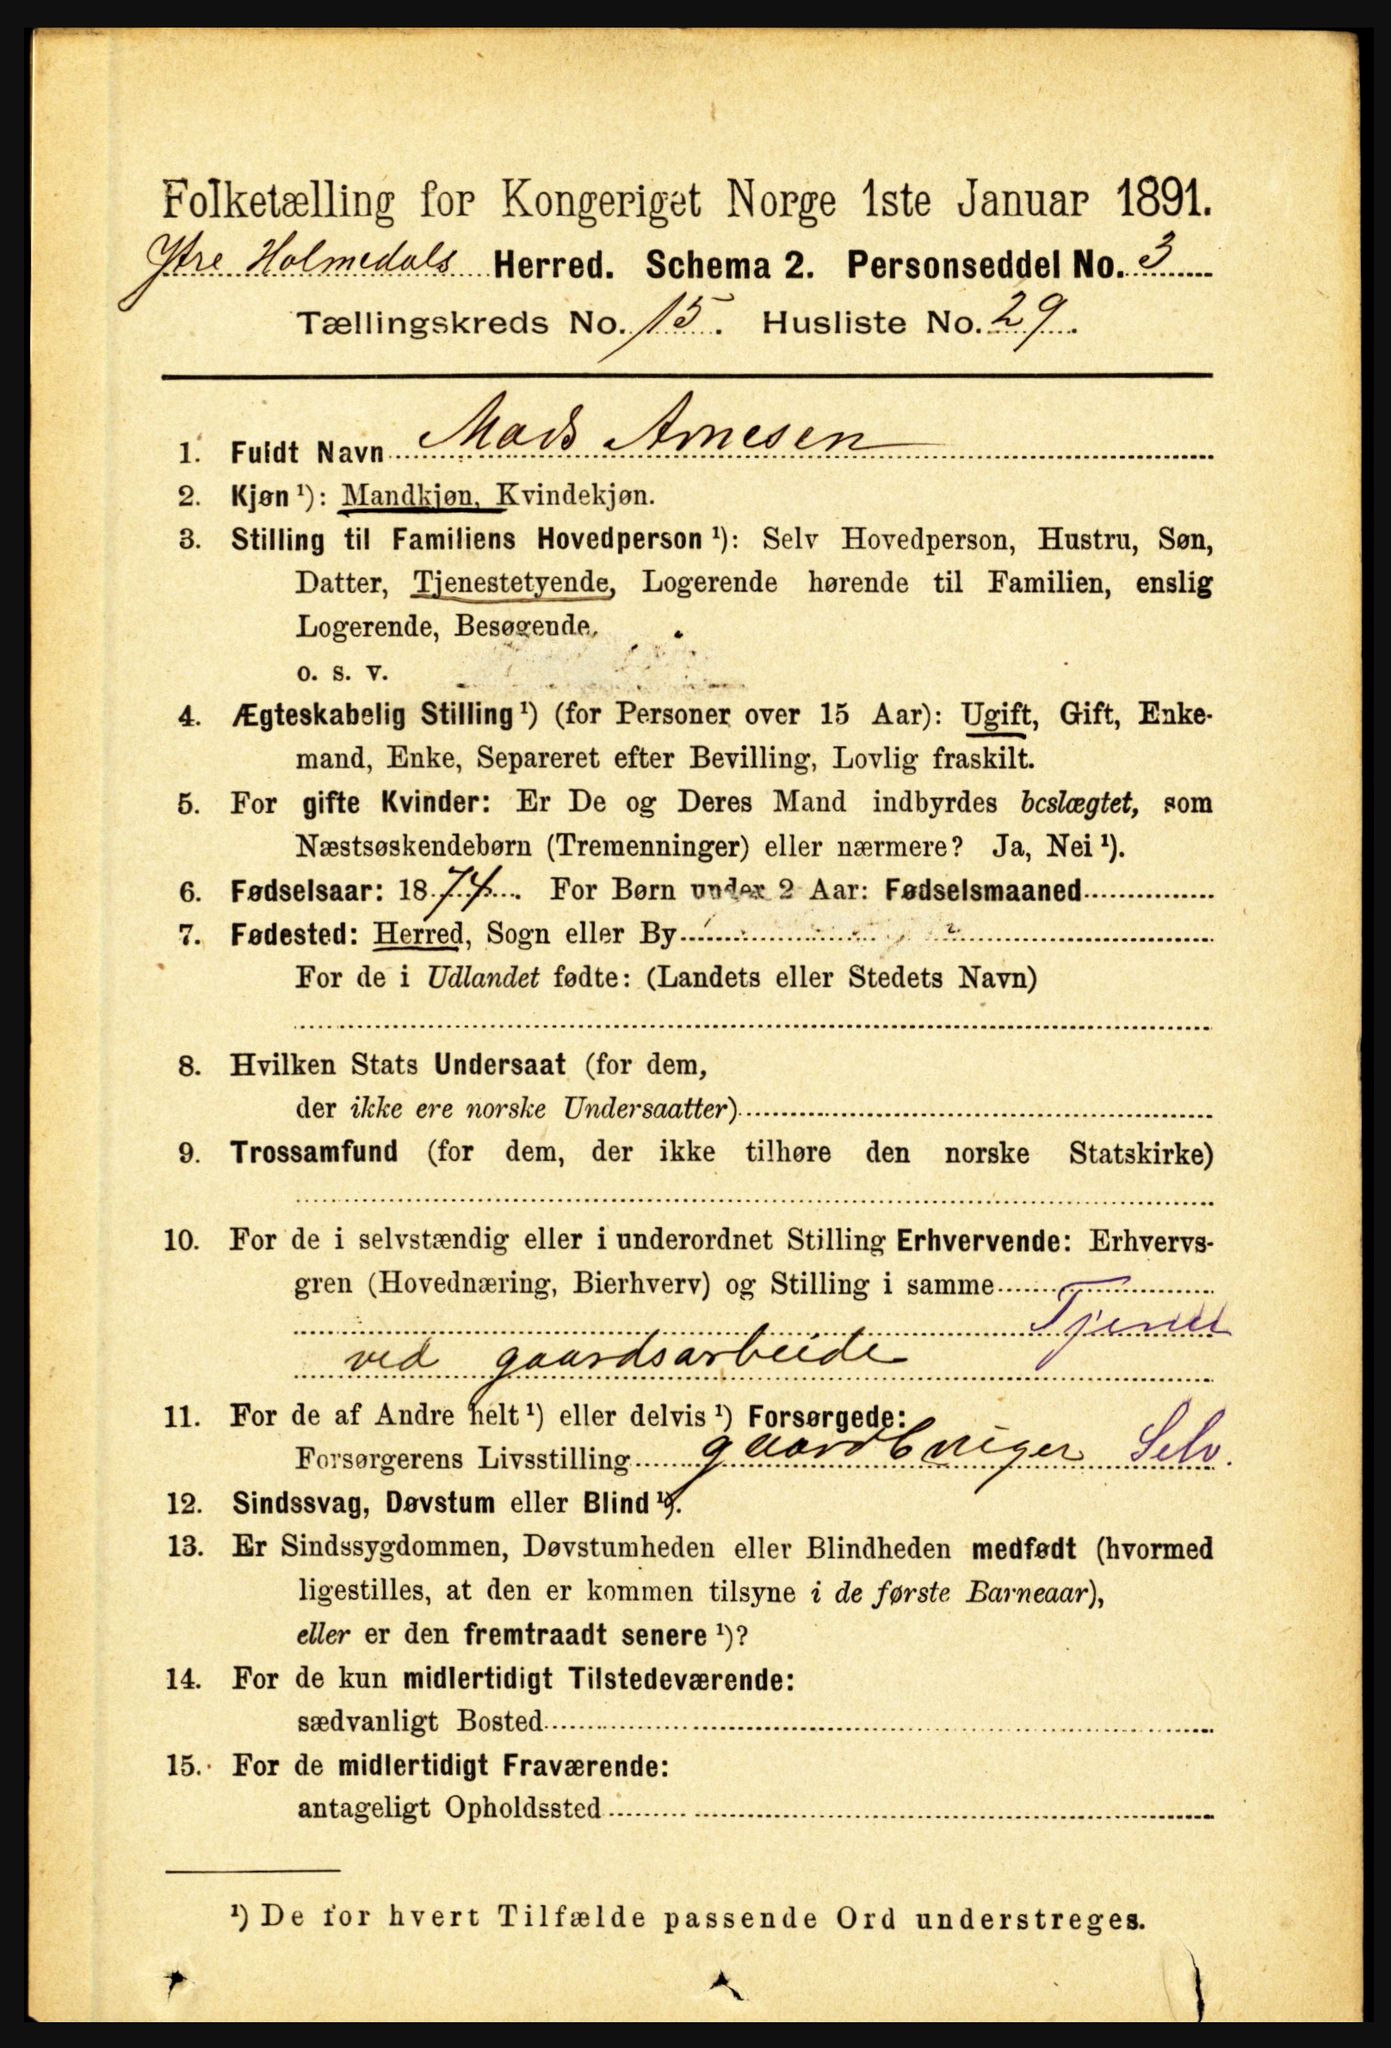 Folketælling for Kongeriget Norge 1ste Januar 1891.
Ytre Holmedals Herred. Schema 2. Personseddel No. 3
Tællingskreds No. 15. Husliste No. 29.
1. Fuldt Navn Mads Arnesen
2. Kjøn ¹): Mandkjøn, Kvindekjøn.
3. Stilling til Familiens Hovedperson ¹): Selv Hovedperson, Hustru, Søn,
Datter, Tjenestetyende, Logerende hørende til Familien, enslig
Logerende, Besøgende,
o. s. v.
4. Ægteskabelig Stilling ¹) (for Personer over 15 Aar): Ugift, Gift, Enke-
mand, Enke, Separeret efter Bevilling, Lovlig fraskilt.
5. For gifte Kvinder: Er De og Deres Mand indbyrdes beslægtet, som
Næstsøskendebørn (Tremenninger) eller nærmere? Ja, Nei ¹).
6. Fødselsaar: 1874. For Børn under 2 Aar: Fødselsmaaned
7. Fødested: Herred, Sogn eller By
For de i Udlandet fødte: (Landets eller Stedets Navn)
8. Hvilken Stats Undersaat (for dem,
der ikke ere norske Undersaatter)
9. Trossamfund (for dem, der ikke tilhøre den norske Statskirke)
10. For de i selvstændig eller i underordnet Stilling Erhvervende: Erhvervs-
gren (Hovednæring, Bierhverv) og Stilling i samme
Tjener
ved gaardsarbeide
11. For de af Andre helt ¹) eller delvis ¹) Forsørgede:
Forsørgerens Livsstilling gaardbruger Selv.
12. Sindssvag, Døvstum eller Blind ¹).
13. Er Sindssygdommen, Døvstumheden eller Blindheden medfødt (hvormed
ligestilles, at den er kommen tilsyne i de første Barneaar),
eller er den fremtraadt senere ¹)?
14. For de kun midlertidigt Tilstedeværende:
sædvanligt Bosted
15. For de midlertidigt Fraværende:
antageligt Opholdssted
¹) De for hvert Tilfælde passende Ord understreges.